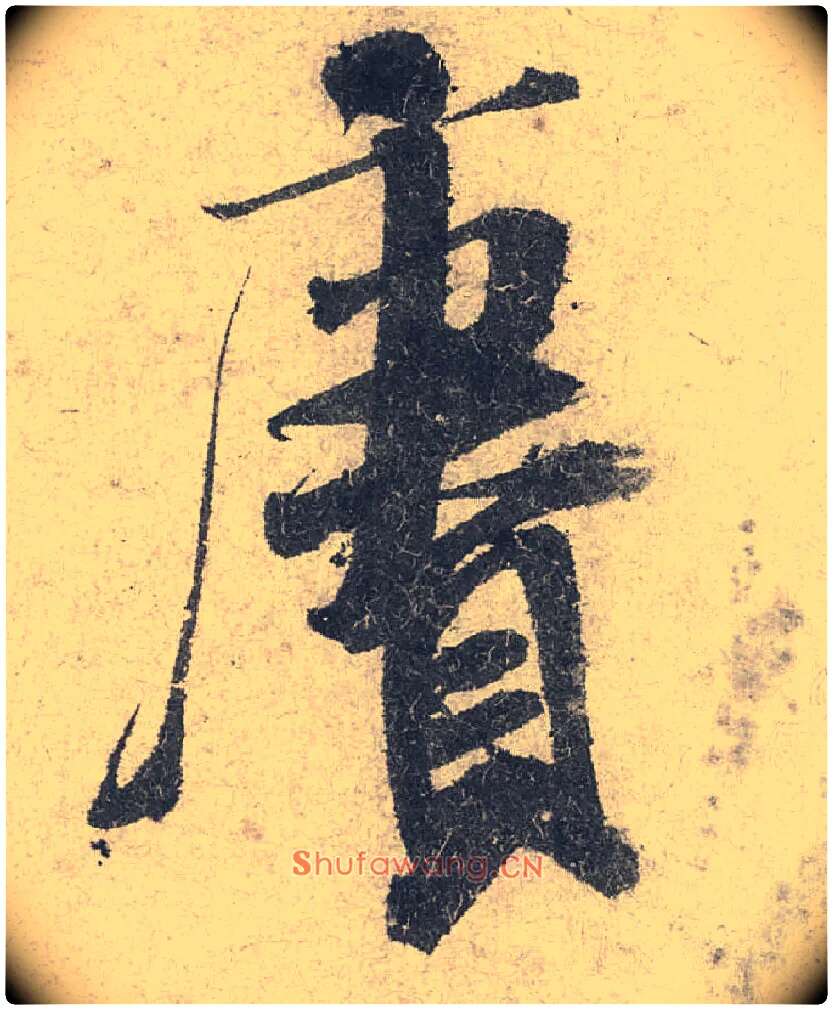 賡
Shufawang.CN